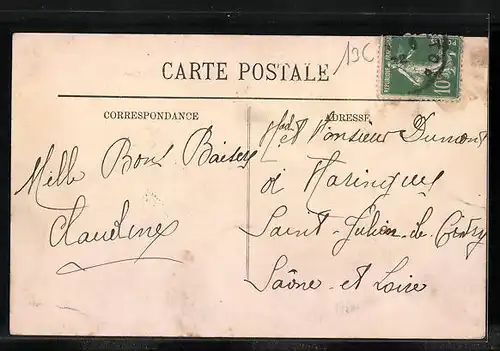 13C
CARTE POSTALE
CORRESPONDANCE
ADRESSE
Mille Bons Baisers
Claudine
Mad et Monsieur Dumont
à
Saint-Julien-de-Civry
Saône-et-Loire
10
POSTES